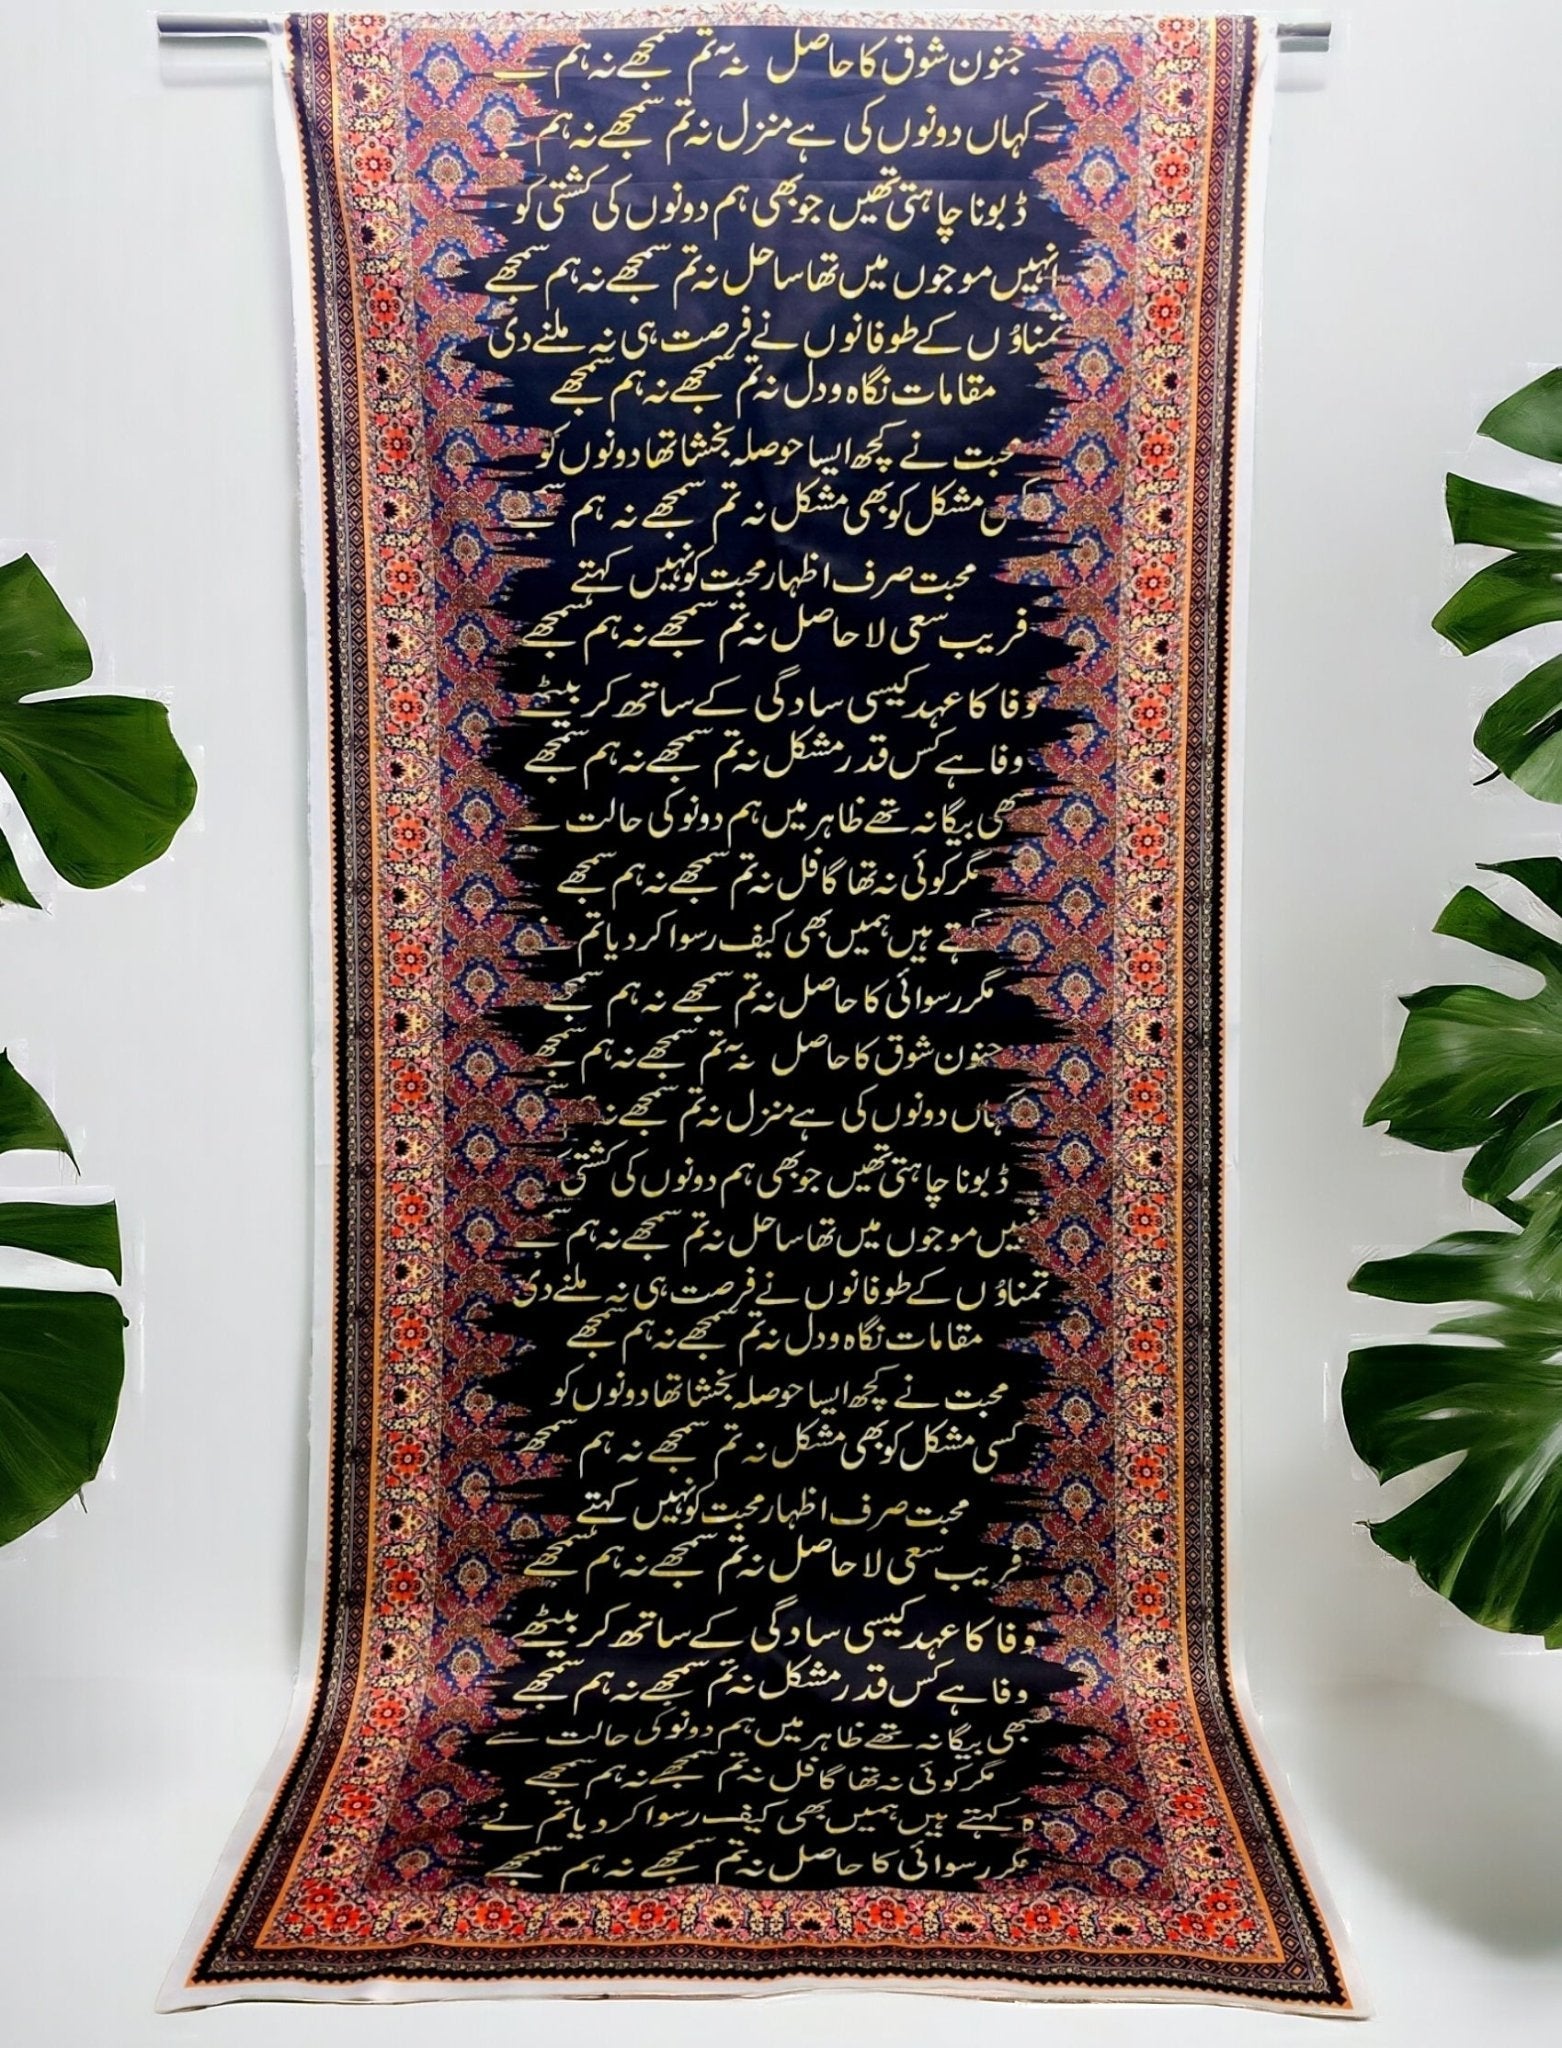 جنون شوق کا حاصل نہ تم سمجھے نہ ہم
کہاں دونوں کی ہے منزل نہ تم سمجھے نہ ہم
ڈبونا چاہتی تھیں جو بھی ہم دونوں کی کشتی کو
انہیں موجوں میں تھا ساحل نہ تم سمجھے نہ ہم سمجھے
تمناؤں کے طوفانوں نے فرصت ہی نہ ملنے دی
مقامات نگاہ و دل نہ تم سمجھے نہ ہم سمجھے
محبت نے کچھ ایسا حوصلہ بخشا تھا دونوں کو
مشکل کو بھی مشکل نہ تم سمجھے نہ ہم
محبت صرف اظہار محبت کو نہیں کہتے
فریب سعی لا حاصل نہ تم سمجھے نہ ہم سمجھے
وفا کا عہد کیسی سادگی کے ساتھ کر بیٹھے
وفا ہے کس قدر مشکل نہ تم سمجھے نہ ہم سمجھے
بیگانہ تھے ظاہر میں ہم دونو کی حالت سے
مگر کوئی نہ تھا گافل نہ تم سمجھے نہ ہم سمجھے
ہیں ہمیں بھی کیف رسوا کر دیا تم
مگر رسوائی کا حاصل نہ تم سمجھے نہ ہم سمجھے
جنون شوق کا حاصل نہ تم سمجھے نہ ہم سمجھے
کہاں دونوں کی ہے منزل نہ تم سمجھے نہ
ڈبونا چاہتی تھیں جو بھی ہم دونوں کی کشتی
موجوں میں تھا ساحل نہ تم سمجھے نہ ہم
تمناؤں کے طوفانوں نے فرصت ہی نہ ملنے دی
مقامات نگاہ و دل نہ تم سمجھے نہ ہم سمجھے
محبت نے کچھ ایسا حوصلہ بخشا تھا دونوں کو
کسی مشکل کو بھی مشکل نہ تم سمجھے نہ ہم سمجھے
محبت صرف اظہار محبت کو نہیں کہتے
فریب سعی لا حاصل نہ تم سمجھے نہ ہم سمجھے
وفا کا عہد کیسی سادگی کے ساتھ کر بیٹھے
وفا ہے کس قدر مشکل نہ تم سمجھے نہ ہم سمجھے
سبھی بیگانہ تھے ظاہر میں ہم دونو کی حالت سے
مگر کوئی نہ تھا گافل نہ تم سمجھے نہ ہم سمجھے
کہتے ہیں ہمیں بھی کیف رسوا کر دیا تم نے
مگر رسوائی کا حاصل نہ تم سمجھے نہ ہم سمجھے